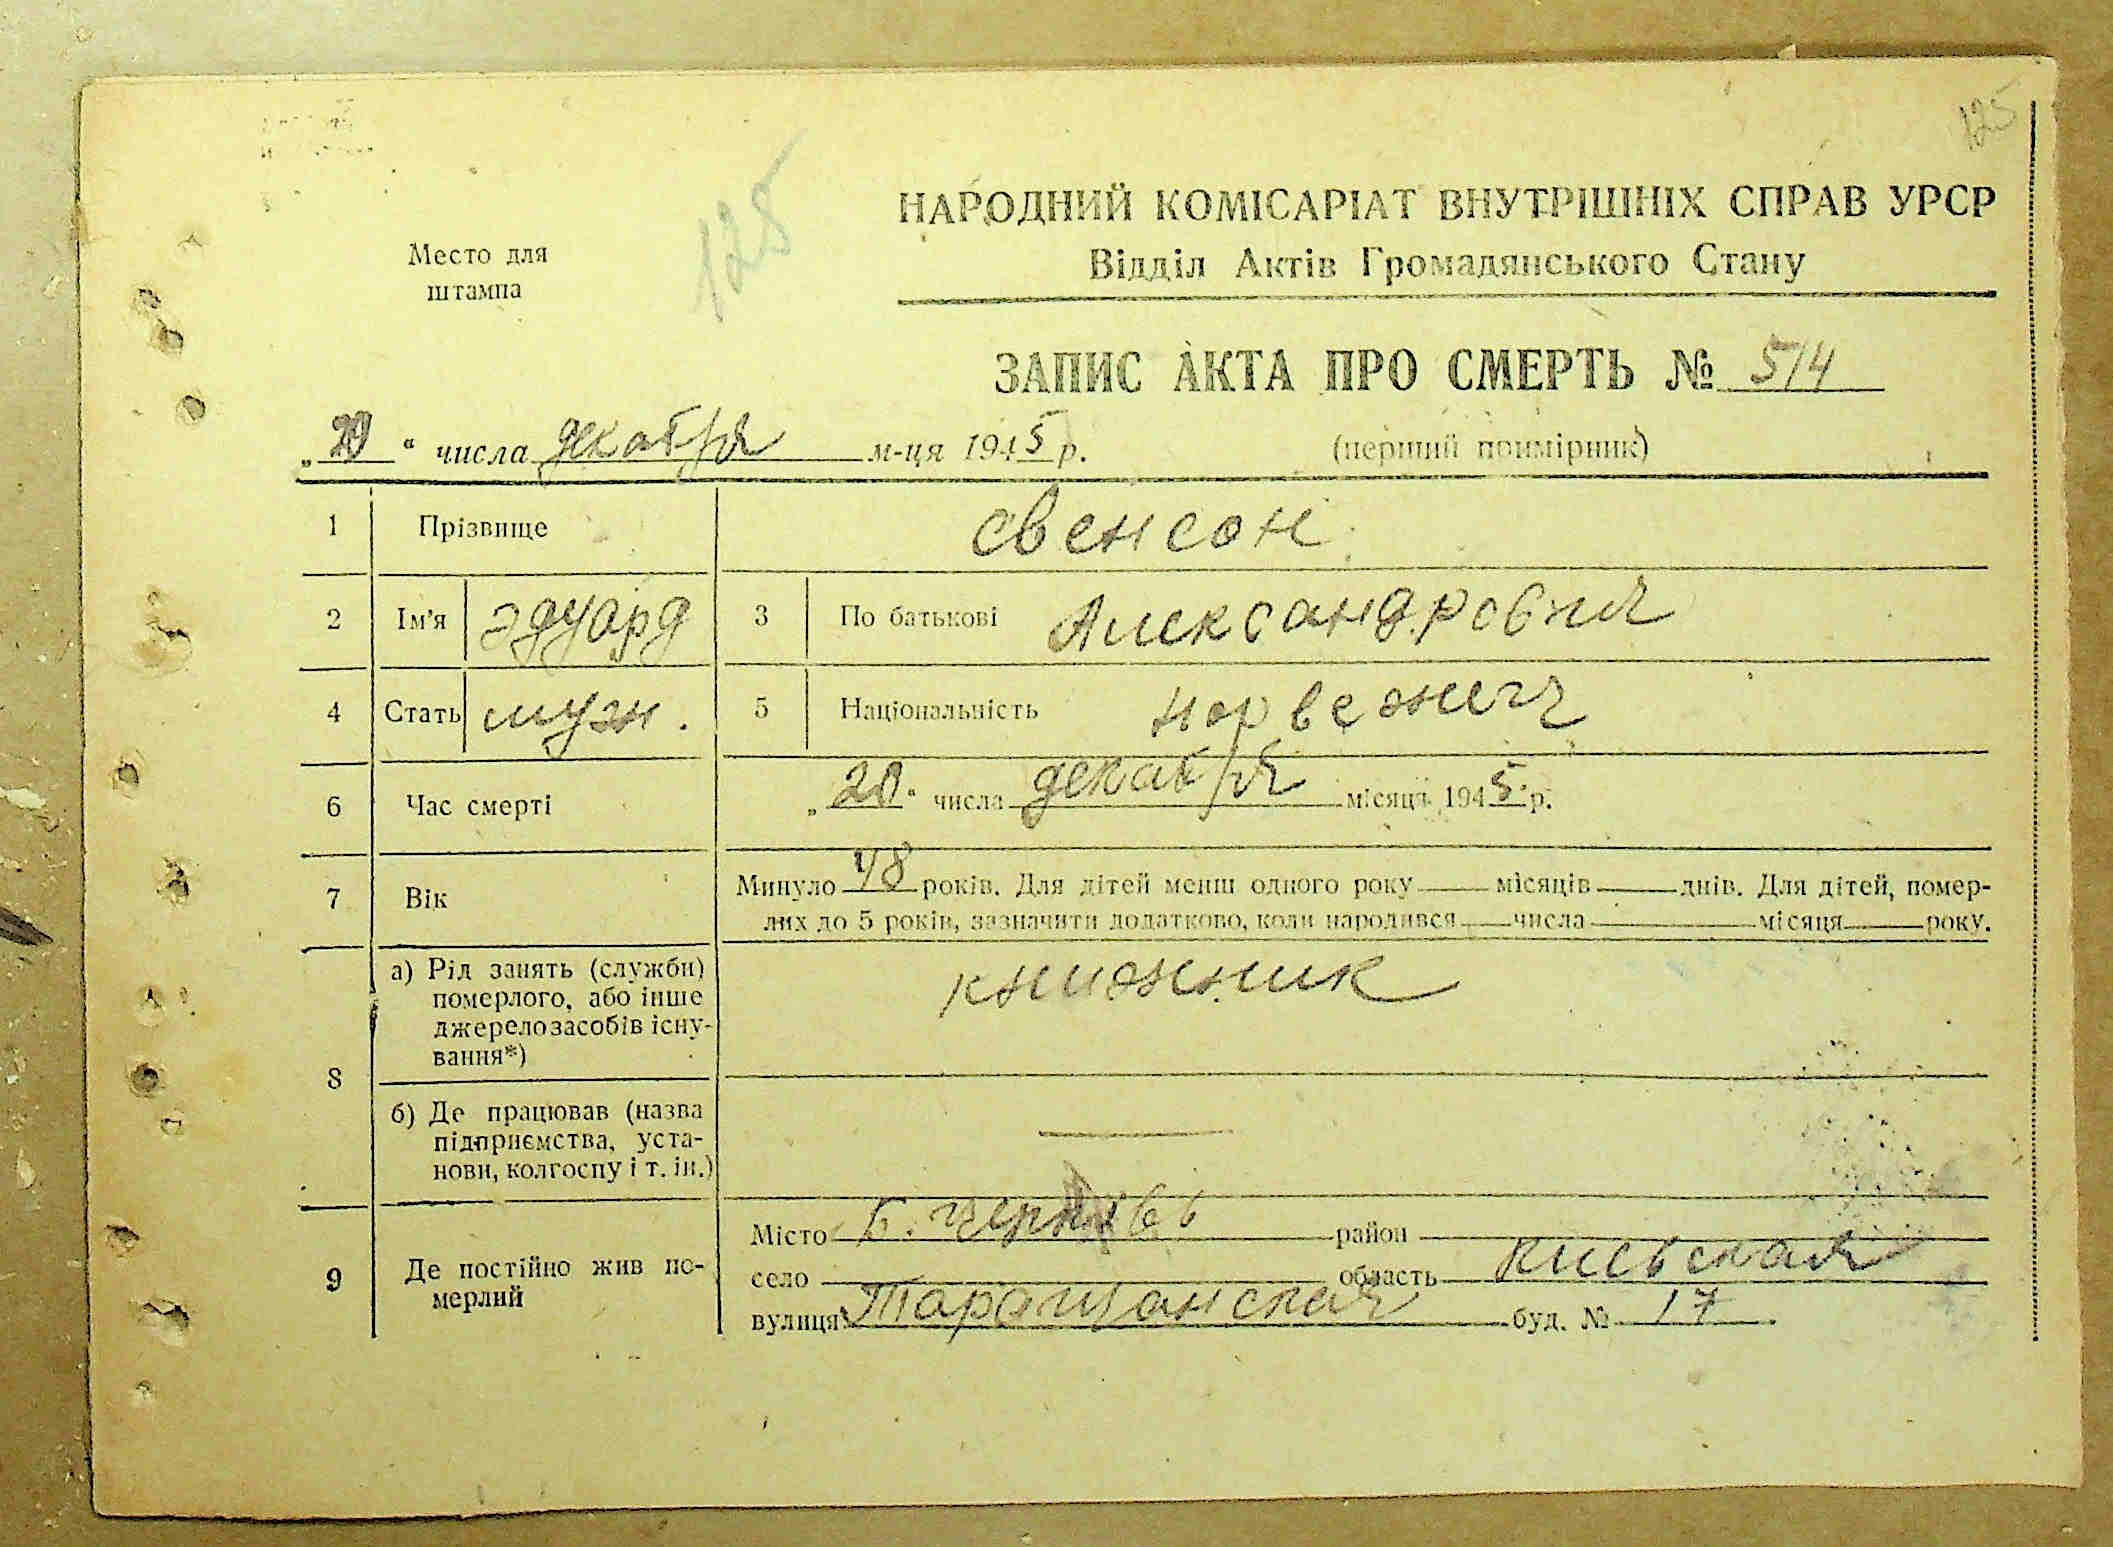 125
125
НАРОДНИЙ КОМІСАРІАТ ВНУТРІШНІХ СПРАВ УРСР
Відділ Актів Громадянського Стану
Место для
штампа
ЗАПИС АКТА ПРО СМЕРТЬ № 514
„ “ числа декабря м-ця 1945 р.
(перший примірник)
1 Прізвище Свенсон
2 Ім'я Эдуард 3 По батькові Александрович
4 Стать муж. 5 Національність норвежец
6 Час смерті „20“ числа декабря місяця 1945 р.
7 Вік Минуло 48 років. Для дітей менш одного року місяців днів. Для дітей, помер-
лих до 5 років, зазначити додатково, коли народився числа місяця року.
8 а) Рід занять (служби)
померлого, або інше
джерело засобів існу-
вання*)
книжник
б) Де працював (назва
підприємства, уста-
нови, колгоспу і т. ін.)
—
9 Де постійно жив по-
мерлий
Місто Б. Церковь район
село область Киевская
вулиця Таращанская буд. № 17